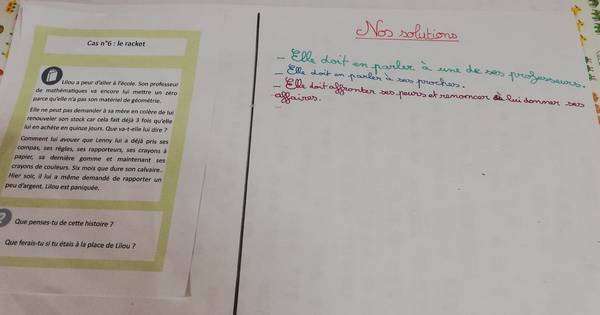 Cas n°6 : le racket
Lilou a peur d'aller à l'école. Son professeur
de mathématiques va encore lui mettre un zéro
parce qu'elle n'a pas son matériel de géométrie.
Elle ne peut pas demander à sa mère en colère de lui
renouveler son stock car cela fait déjà 3 fois qu'elle
lui en achète en quinze jours. Que va-t-elle lui dire ?
Comment lui avouer que Lenny lui a déjà pris ses
compas, ses règles, ses rapporteurs, ses crayons à
papier, sa dernière gomme et maintenant ses
crayons de couleurs. Six mois que dure son calvaire.
Hier soir, il lui a même demandé de rapporter un
peu d'argent. Lilou est paniquée.
?
Que penses-tu de cette histoire ?
Que ferais-tu si tu étais à la place de Lilou ?
Nos solutions
- Elle doit en parler à une de ses professeurs.
- Elle doit en parler à ses proches.
- Elle doit affronter ses peurs et renoncer à lui donner ses
affaires.
-